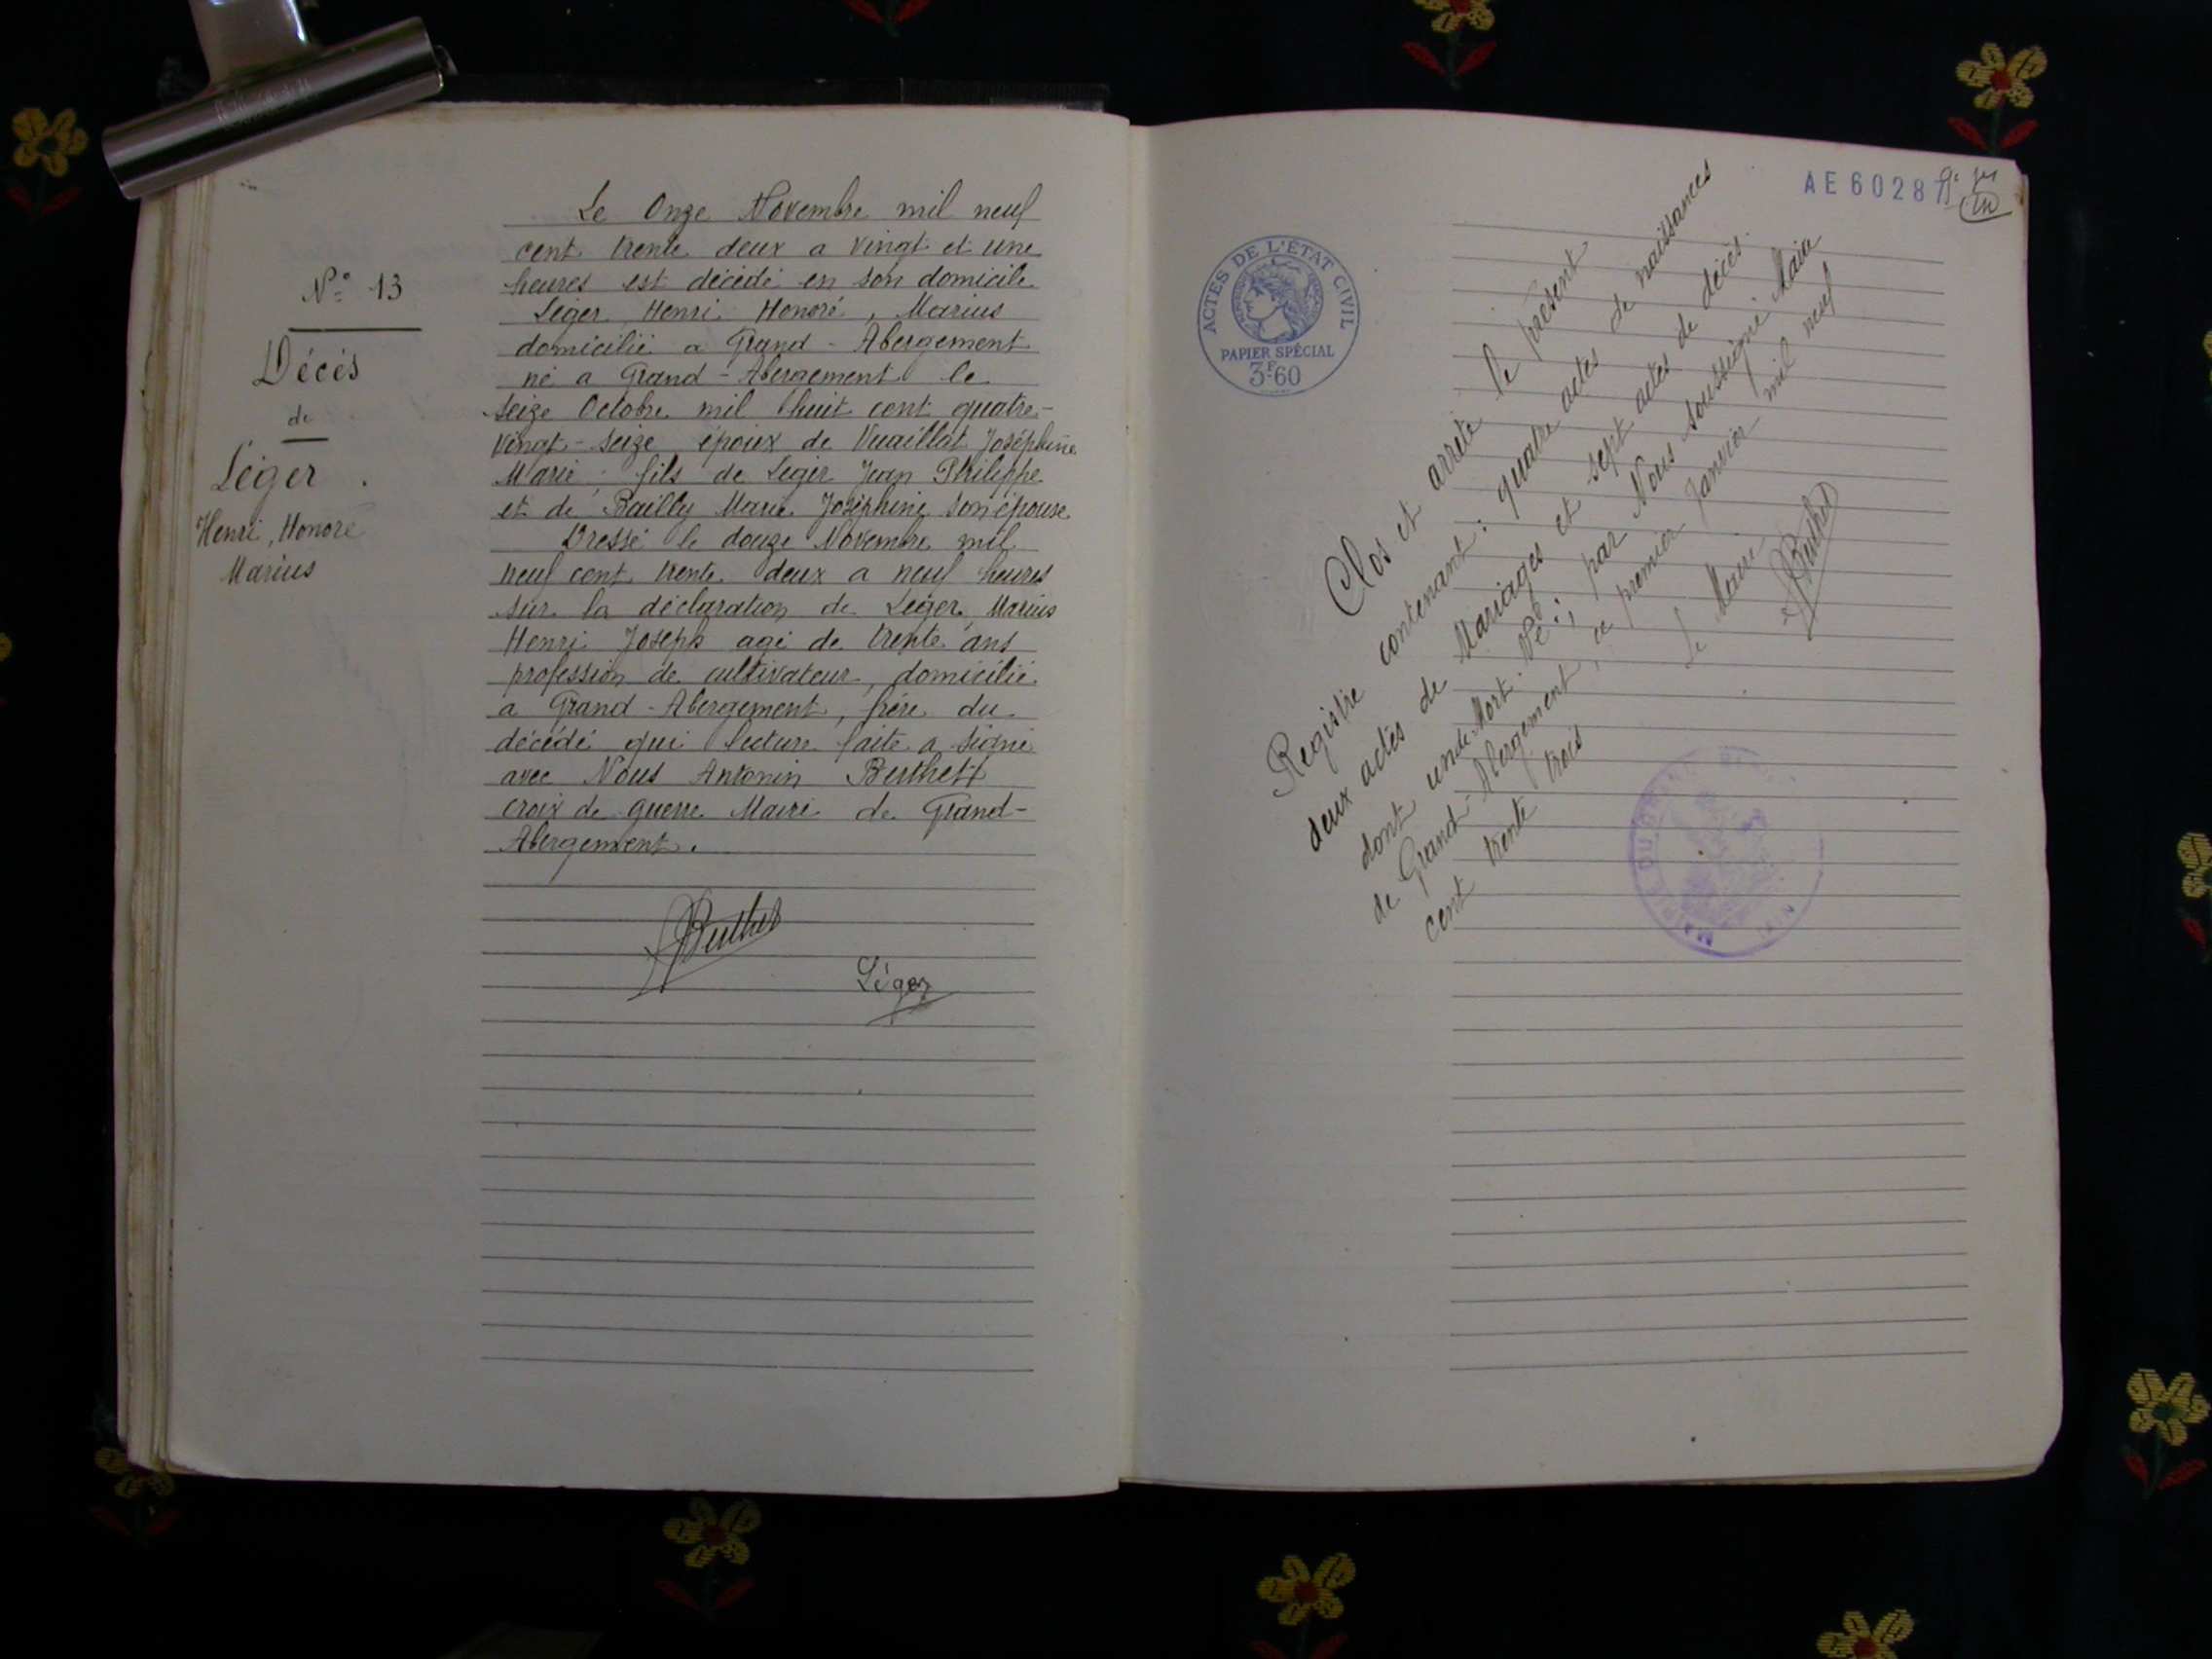 N° 13
Décès
de
Léger
Henri, Honoré
Marius
Le Onze Novembre mil neuf
cent trente deux a vingt et une
heures est décédé en son domicile
Léger, Henri Honoré, Marius
domicilié a Grand-Abergement
né a Grand-Abergement le
seize Octobre mil huit cent quatre-
vingt-seize époux de Vuaillat Joséphine
Marie, fils de Léger Jean Philippe
et de Bailly Marie Joséphine son épouse
Dressé le douze Novembre mil
neuf cent trente deux a neuf heures
sur la déclaration de Léger, Marius
Henri Joseph agé de trente ans
profession de cultivateur, domicilié
a Grand-Abergement, frère du
décédé qui lecture faite a signé
avec Nous Antonin Berthet
croix de guerre Maire de Grand-
Abergement.
Berthet
Léger
AE 6028
ACTES DE L'ÉTAT CIVIL
PAPIER SPÉCIAL
3F60
Clos et arrêté le présent
Registre contenant : quatre actes de naissances
deux actes de Mariages et sept actes de décès
dont un de Mort-Né ; par Nous soussigné Maire
de Grand-Abergement, ce premier Janvier mil neuf
cent trente trois
Le Maire
Berthet
MAIRIE DU GRAND